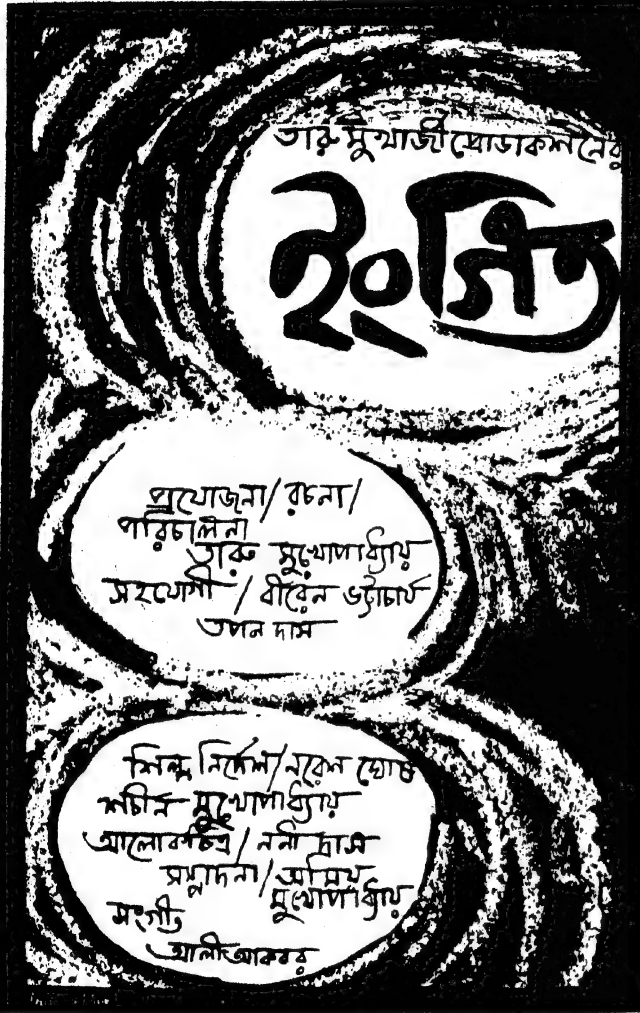 তারু মুখার্জী প্রোডাকশনের
ইংগিত
প্রযোজনা/রচনা/
পরিচালনা
তারু মুখোপাধ্যায়
সহযোগী/বীরেন ভট্টাচার্য
তপন দাস
শিল্প নির্দেশ/নরেশ ঘোষ
শচীন মুখোপাধ্যায়
আলোকচিত্র/ননী দাস
সম্পাদনা/অমিয়
মুখোপাধ্যায়
সংগীত
আলীআকবর